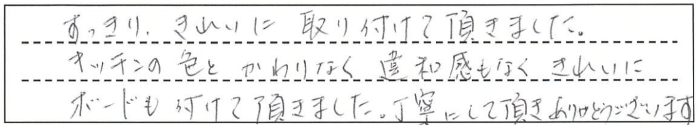 すっきり、きれいに取り付けて頂きました。
キッチンの色とかわりなく違和感もなくきれいに
ボードも付けて頂きました。丁寧にして頂きありがとうございます